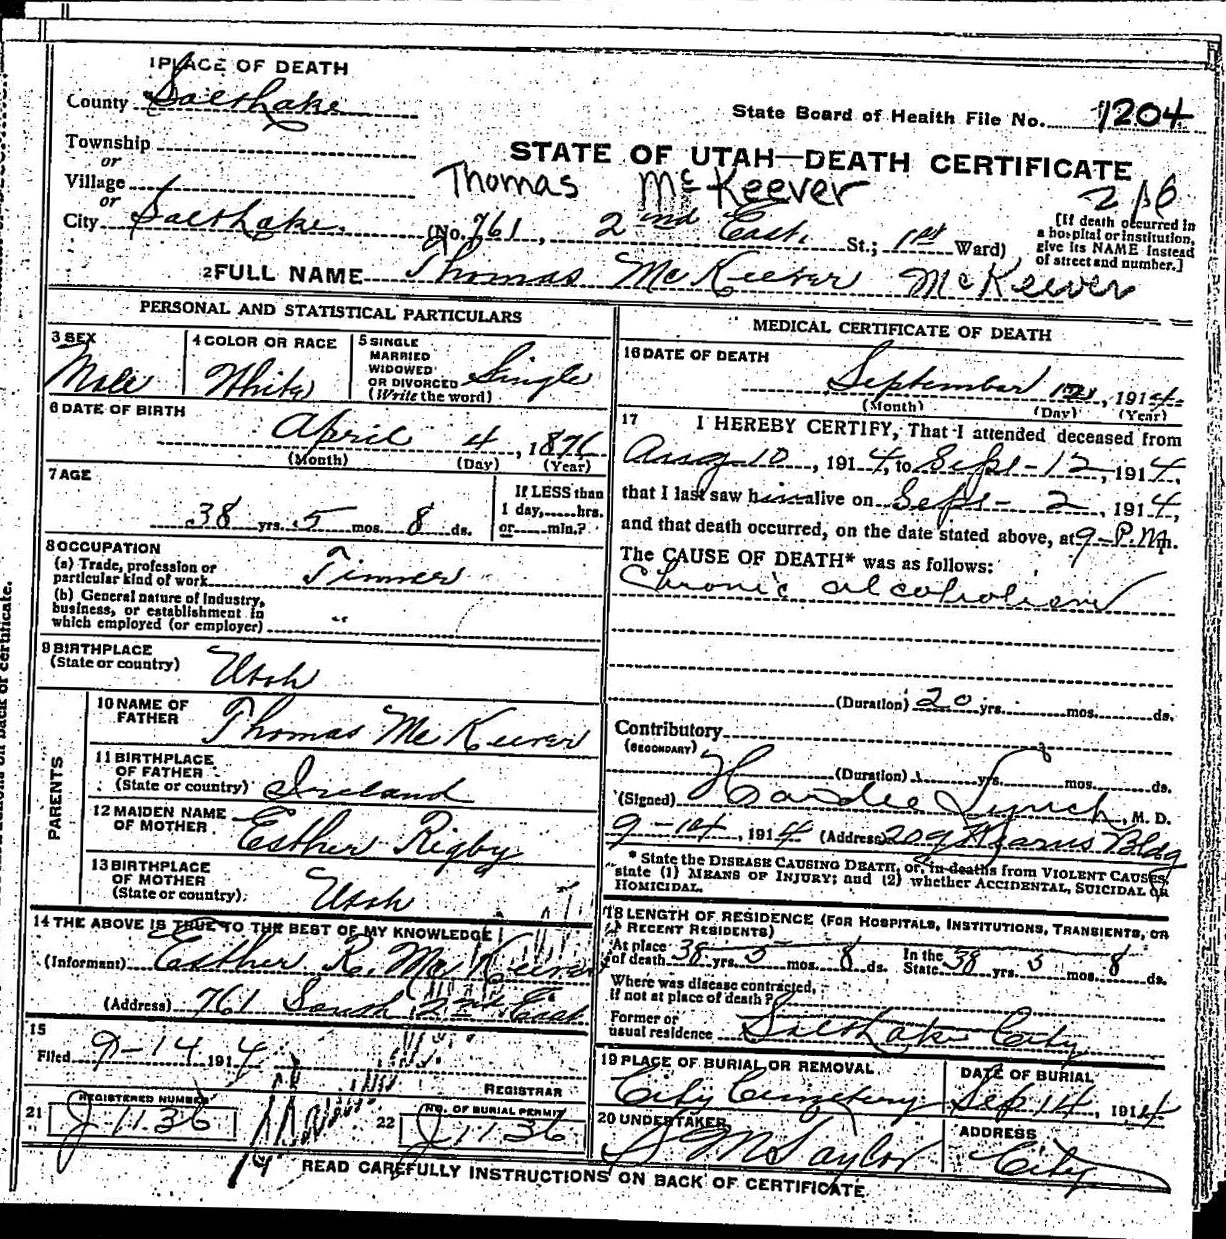 1 PLACE OF DEATH
County Salt Lake
State Board of Health File No. 1204
Township
or
Village
or
STATE OF UTAH—DEATH CERTIFICATE
Thomas McKeever
City Salt Lake. (No. 761, 2nd East. St.; 1st Ward)
[If death occurred in
a hospital or institution,
give its NAME instead
of street and number.]
2 FULL NAME Thomas McKeever McKeever
PERSONAL AND STATISTICAL PARTICULARS
3 SEX
Male
4 COLOR OR RACE
White
5 SINGLE
MARRIED
WIDOWED
OR DIVORCED
(Write the word)
Single
6 DATE OF BIRTH
April 4, 1876
(Month) (Day) (Year)
7 AGE
38 yrs. 5 mos. 8 ds.
If LESS than
1 day, hrs.
or min.?
8 OCCUPATION
(a) Trade, profession or
particular kind of work Tinner
(b) General nature of industry,
business, or establishment in
which employed (or employer) "
9 BIRTHPLACE
(State or country) Utah
PARENTS
10 NAME OF
FATHER Thomas McKeever
11 BIRTHPLACE
OF FATHER
(State or country) Ireland
12 MAIDEN NAME
OF MOTHER Esther Rigby
13 BIRTHPLACE
OF MOTHER
(State or country) Utah
14 THE ABOVE IS TRUE TO THE BEST OF MY KNOWLEDGE
(Informant) Esther R. McKeever
(Address) 761 South 2nd East
15
Filed 9-14 1914
REGISTRAR
21 REGISTERED NUMBER
J 1136
22 NO. OF BURIAL PERMIT
J 1136
MEDICAL CERTIFICATE OF DEATH
16 DATE OF DEATH
September 12, 1914.
(Month) (Day) (Year)
17 I HEREBY CERTIFY, That I attended deceased from
Aug 10, 1914, to Sept-12, 1914,
that I last saw him alive on Sept-2, 1914,
and that death occurred, on the date stated above, at 9-P.M.
The CAUSE OF DEATH* was as follows:
Chronic alcoholism
(Duration) 20 yrs. mos. ds.
Contributory
(SECONDARY)
(Duration) yrs. mos. ds.
(Signed) Lynch, M. D.
9-14, 1914 (Address) 209 Kearns Bldg
* State the DISEASE CAUSING DEATH, or, in deaths from VIOLENT CAUSES,
state (1) MEANS OF INJURY; and (2) whether ACCIDENTAL, SUICIDAL OR
HOMICIDAL.
18 LENGTH OF RESIDENCE (FOR HOSPITALS, INSTITUTIONS, TRANSIENTS, OR
RECENT RESIDENTS)
At place
of death 38 yrs. 5 mos. 8 ds.
In the
State 38 yrs. 5 mos. 8 ds.
Where was disease contracted,
if not at place of death?
Former or
usual residence Salt Lake City
19 PLACE OF BURIAL OR REMOVAL
City Cemetery
DATE OF BURIAL
Sep 14, 1914
20 UNDERTAKER
S M Taylor
ADDRESS
City
READ CAREFULLY INSTRUCTIONS ON BACK OF CERTIFICATE